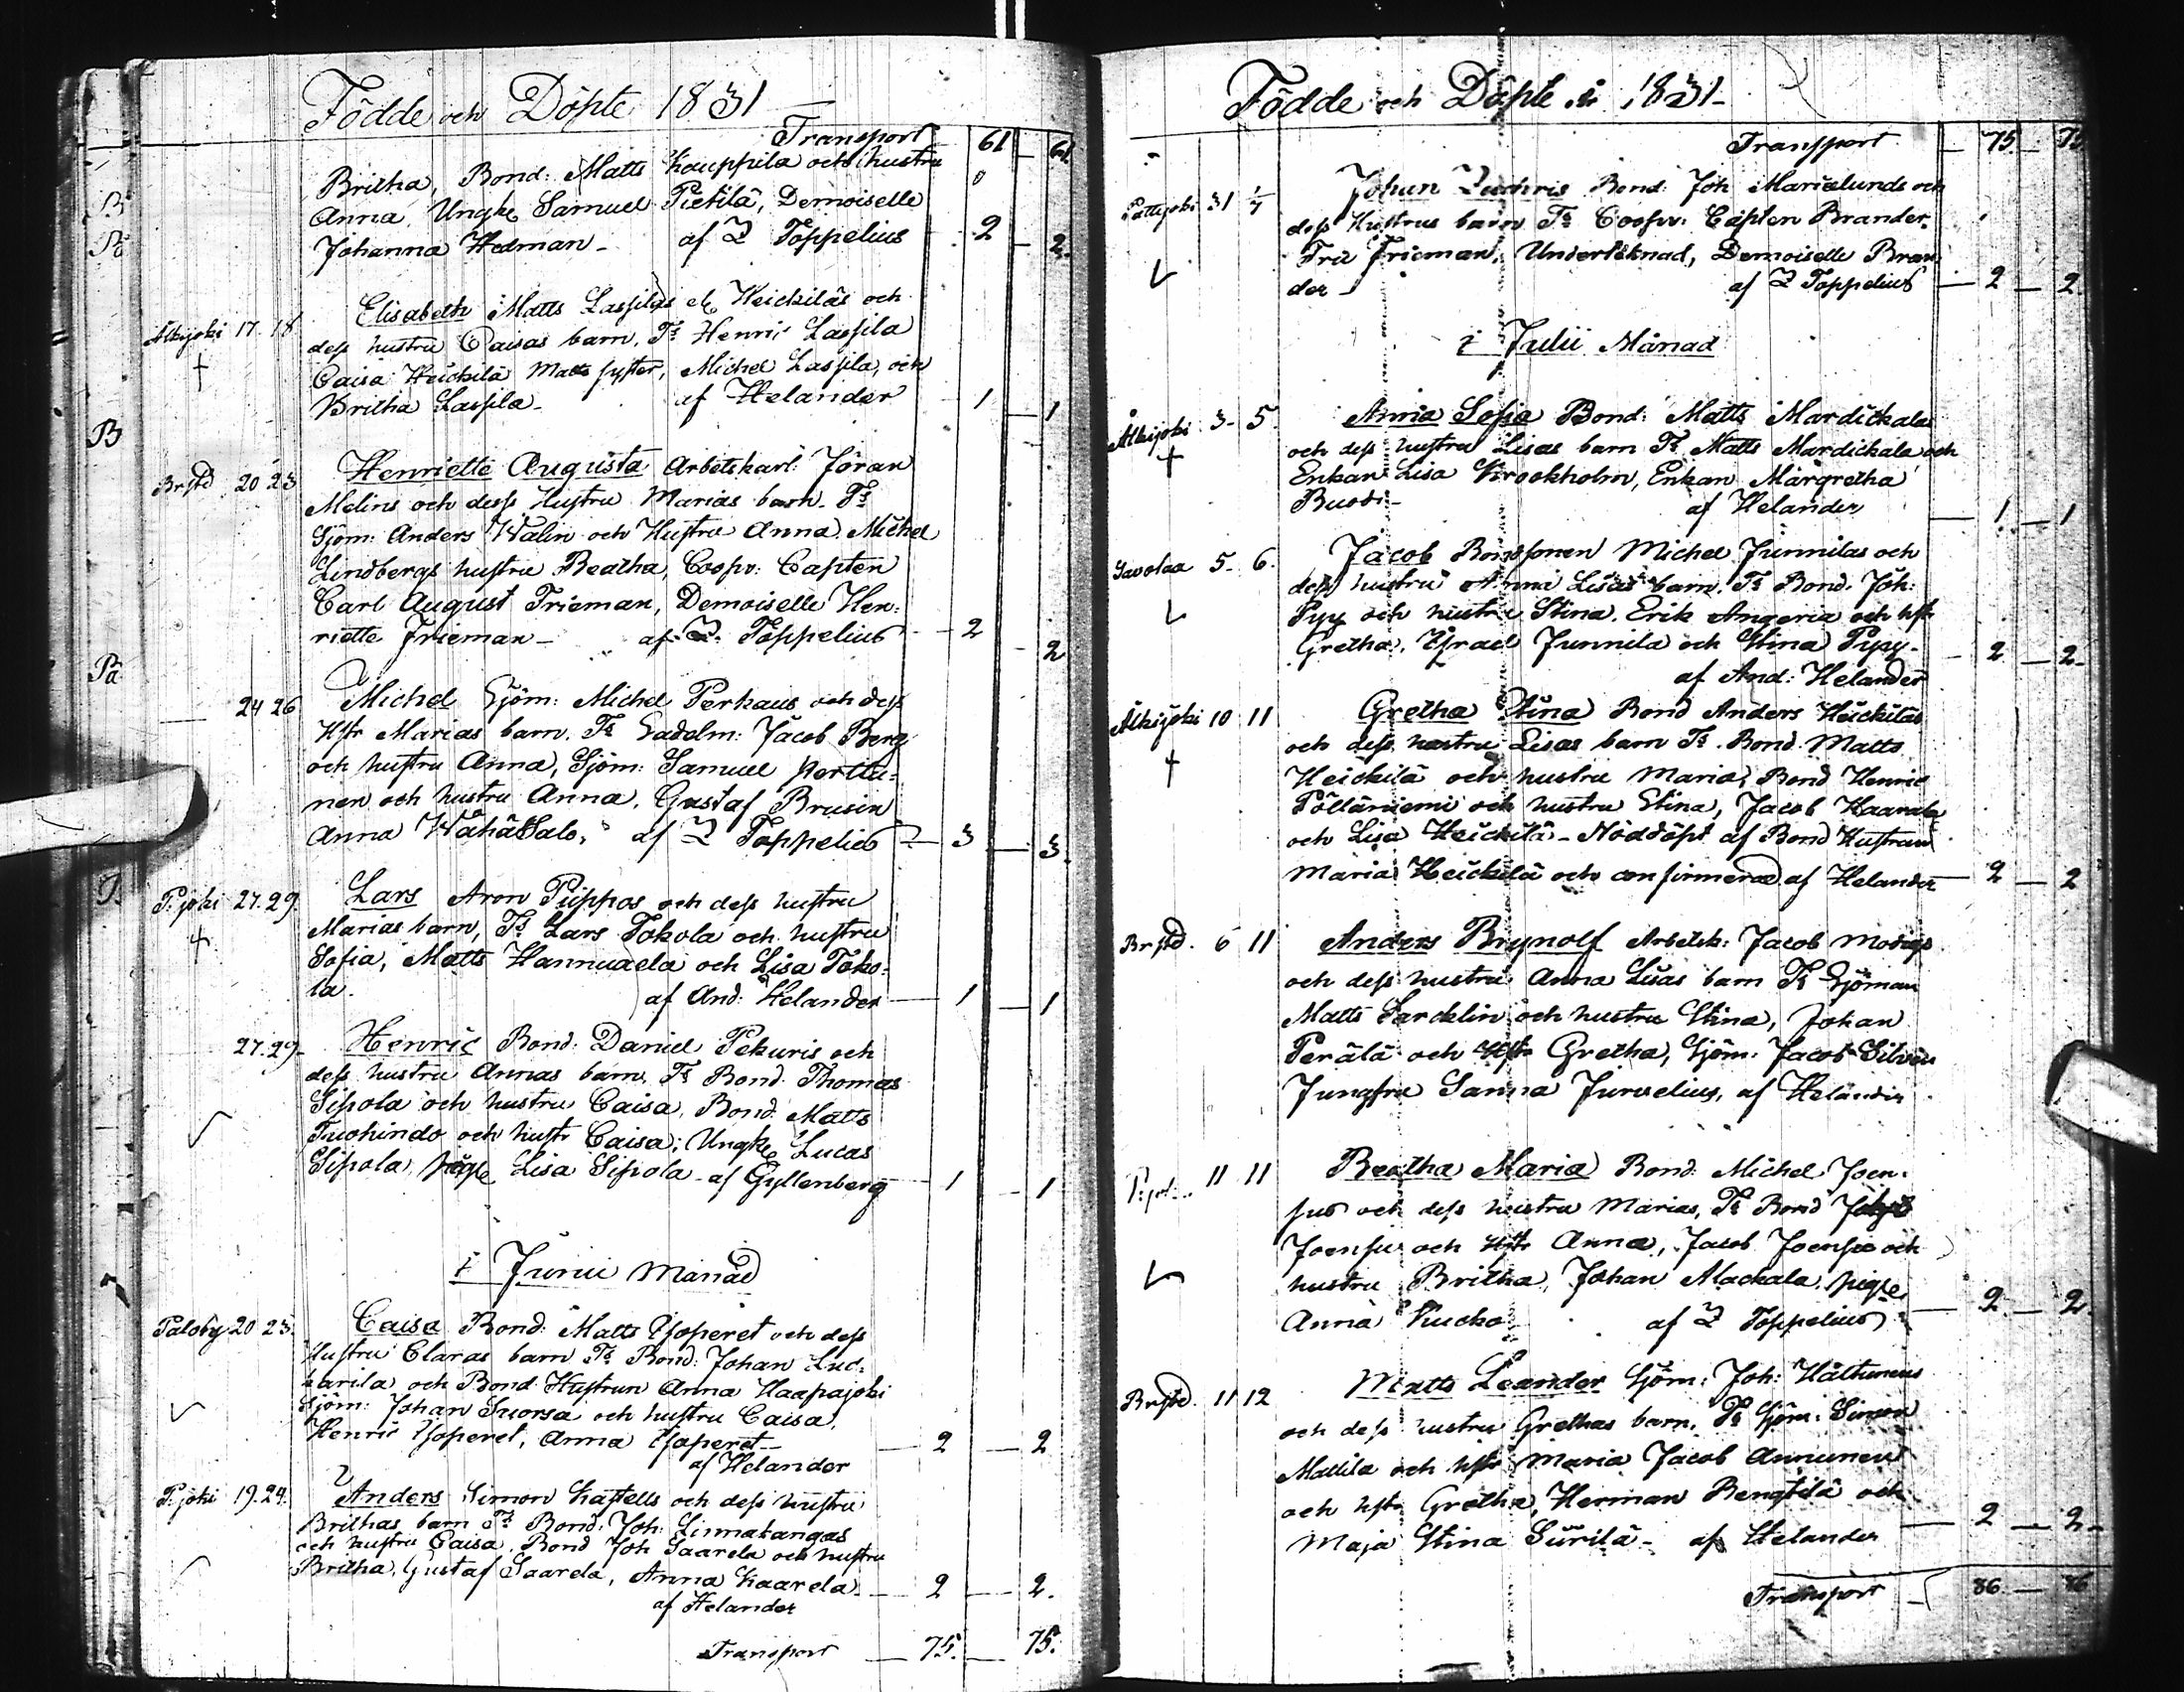 Födde och Döpte 1831
Transport 61 61
Britha, Bond: Matts Kauppila och hustru
Anna, Ungke Samuel Pietilä, Demoiselle
Johanna Hedman - af Z Toppelius 2 2
B
Pa
Alkijoki 17. 18 Elisabeth Matts Lassilas el Heickiläs och
dess hustru Caisas barn, Ts Henric Lassila
Caisa Heickilä Matts syster, Michel Lassila, och
Britha Lassila - af Helander 1 1
B
Brstd 20 23 Henriette Augusta Arbetskarl: Jöran
Melins och dess Hustru Marias barn. Ts
Sjöm: Anders Walin och Hustru Anna, Michel
Lindbergs hustru Beatha, Coopv: Capten
Carl August Frieman, Demoiselle Hen-
riette Frieman - af Z. Toppelius 2 2
Pa
24 26 Michel Sjöm: Michel Perkaus och dess
Hstr Marias barn. Ts Jacob Berg
och hustru Anna, Sjöm: Samuel Perttu-
nen och hustru Anna, Gustaf Brusin
Anna WähäSalo, af Z Toppelius 3 3.
P.joki 27. 29. Lars Aron Pieppos och dess hustru
Marias barn, Ts Lars Tokola och hustru
Sofia, Matts Hannuaela och Lisa Toko-
la. af And: Helander 1 1
27. 29 - Henric Bond: Daniel Pekuris och
dess hustru Annas barn, Ts Bond Thomas
Sipola och hustru Caisa, Bond Matts
Tuohindo och hustr Caisa; Ungke Lucas
Sipola, pige Lisa Sipola - af Gyllenberg 1 1
i Junii Månad
Paloby 20 23. Caisa Bond: Matts Ysoperet och dess
Hustru Claras barn Ts Bond: Johan Luc-
karila och Bond Hustrun Anna Haapajoki
Sjöm: Johan Suorsa och hustru Caisa,
Henric Ysoperet, Anna Ysoperet - 2 2
af Helander
P.joki 19. 24. Anders Simon Kastells och dess hustru
Brithas barn Ts Bond: Joh: Linnakangas
och hustru Caisa, Bond Joh Saarela och hustru
Britha, Gustaf Saarela, Anna Kaarela 2 2.
af Helander
Transport 75. 75.
Födde och Döpte år 1831 -
Transport 75. 75
Pattijoki 31 1/7 Johan Zachris Bond: Joh Marielunds och
dess Hustrus barn Ts Coopv: Capten Brander,
Fru Frieman, Undertcknad, Demoiselle Bran
der - af Z Toppelius 2 2.
i Julii Månad
Alkijoki 3 - 5. Anna Sofia Bond: Matts Mardickalas
och dess hustru Lisas barn Ts Matts Mardickala och
Enkan Lisa Krookholm, Enkan Margretha
Buodi - af Helander 1 1
Savolax 5 - 6. Jacob Bondsonen Michel Junnilas och
dess hustru Anna Lisas barn. Ts Bond. Joh:
Pyy och hustru Stina, Erik Angeria och hstr
Gretha, Israel Junnila och Stina Pyy - 2. 2.
af And: Helander
Alkijoki 10 11 Gretha Stina Bond Anders Heickiläs
och dess hustru Lisas barn Ts. Bond Matts
Heickilä och hustru Maria, Bond Henric
Pölläniemi och hustru Stina, Jacob Kaarala
och Lisa Heickilä - Nöddöpt af Bond Hustrun
Maria Heickilä och confirmerad af Helander 2 2
Brstd. 6 11 Anders Brynolf Arbetsk: Jacob
och dess hustru Anna Lisas barn Ts Sjöman
Matts Sarcklin och hustru Stina, Johan
Perälä och Hstr Gretha, Sjöm: Jacob Silvén
Jungfru Sanna Juruelius, af Helander
P.joki 11 11 Beatha Maria Bond: Michel Joen-
sus och dess hustru Marias, Ts Bond
Joensu och Hstr Anna, Jacob Joensu och
hustru Britha, Johan Mackala, pige
Anna Kucko af Z Toppelius 2. 2.
Brstd. 11 12 Matts Leander Sjöm: Joh: Hältunens
och dess hustru Grethas barn, Ts Sjöm: Simon
Mattila och hstr Maria Jacob Annunen
och hstr Gretha, Herman Bengtilä och
Maja Stina Surilä - af Helander 2 2 -
Transport 86. 86